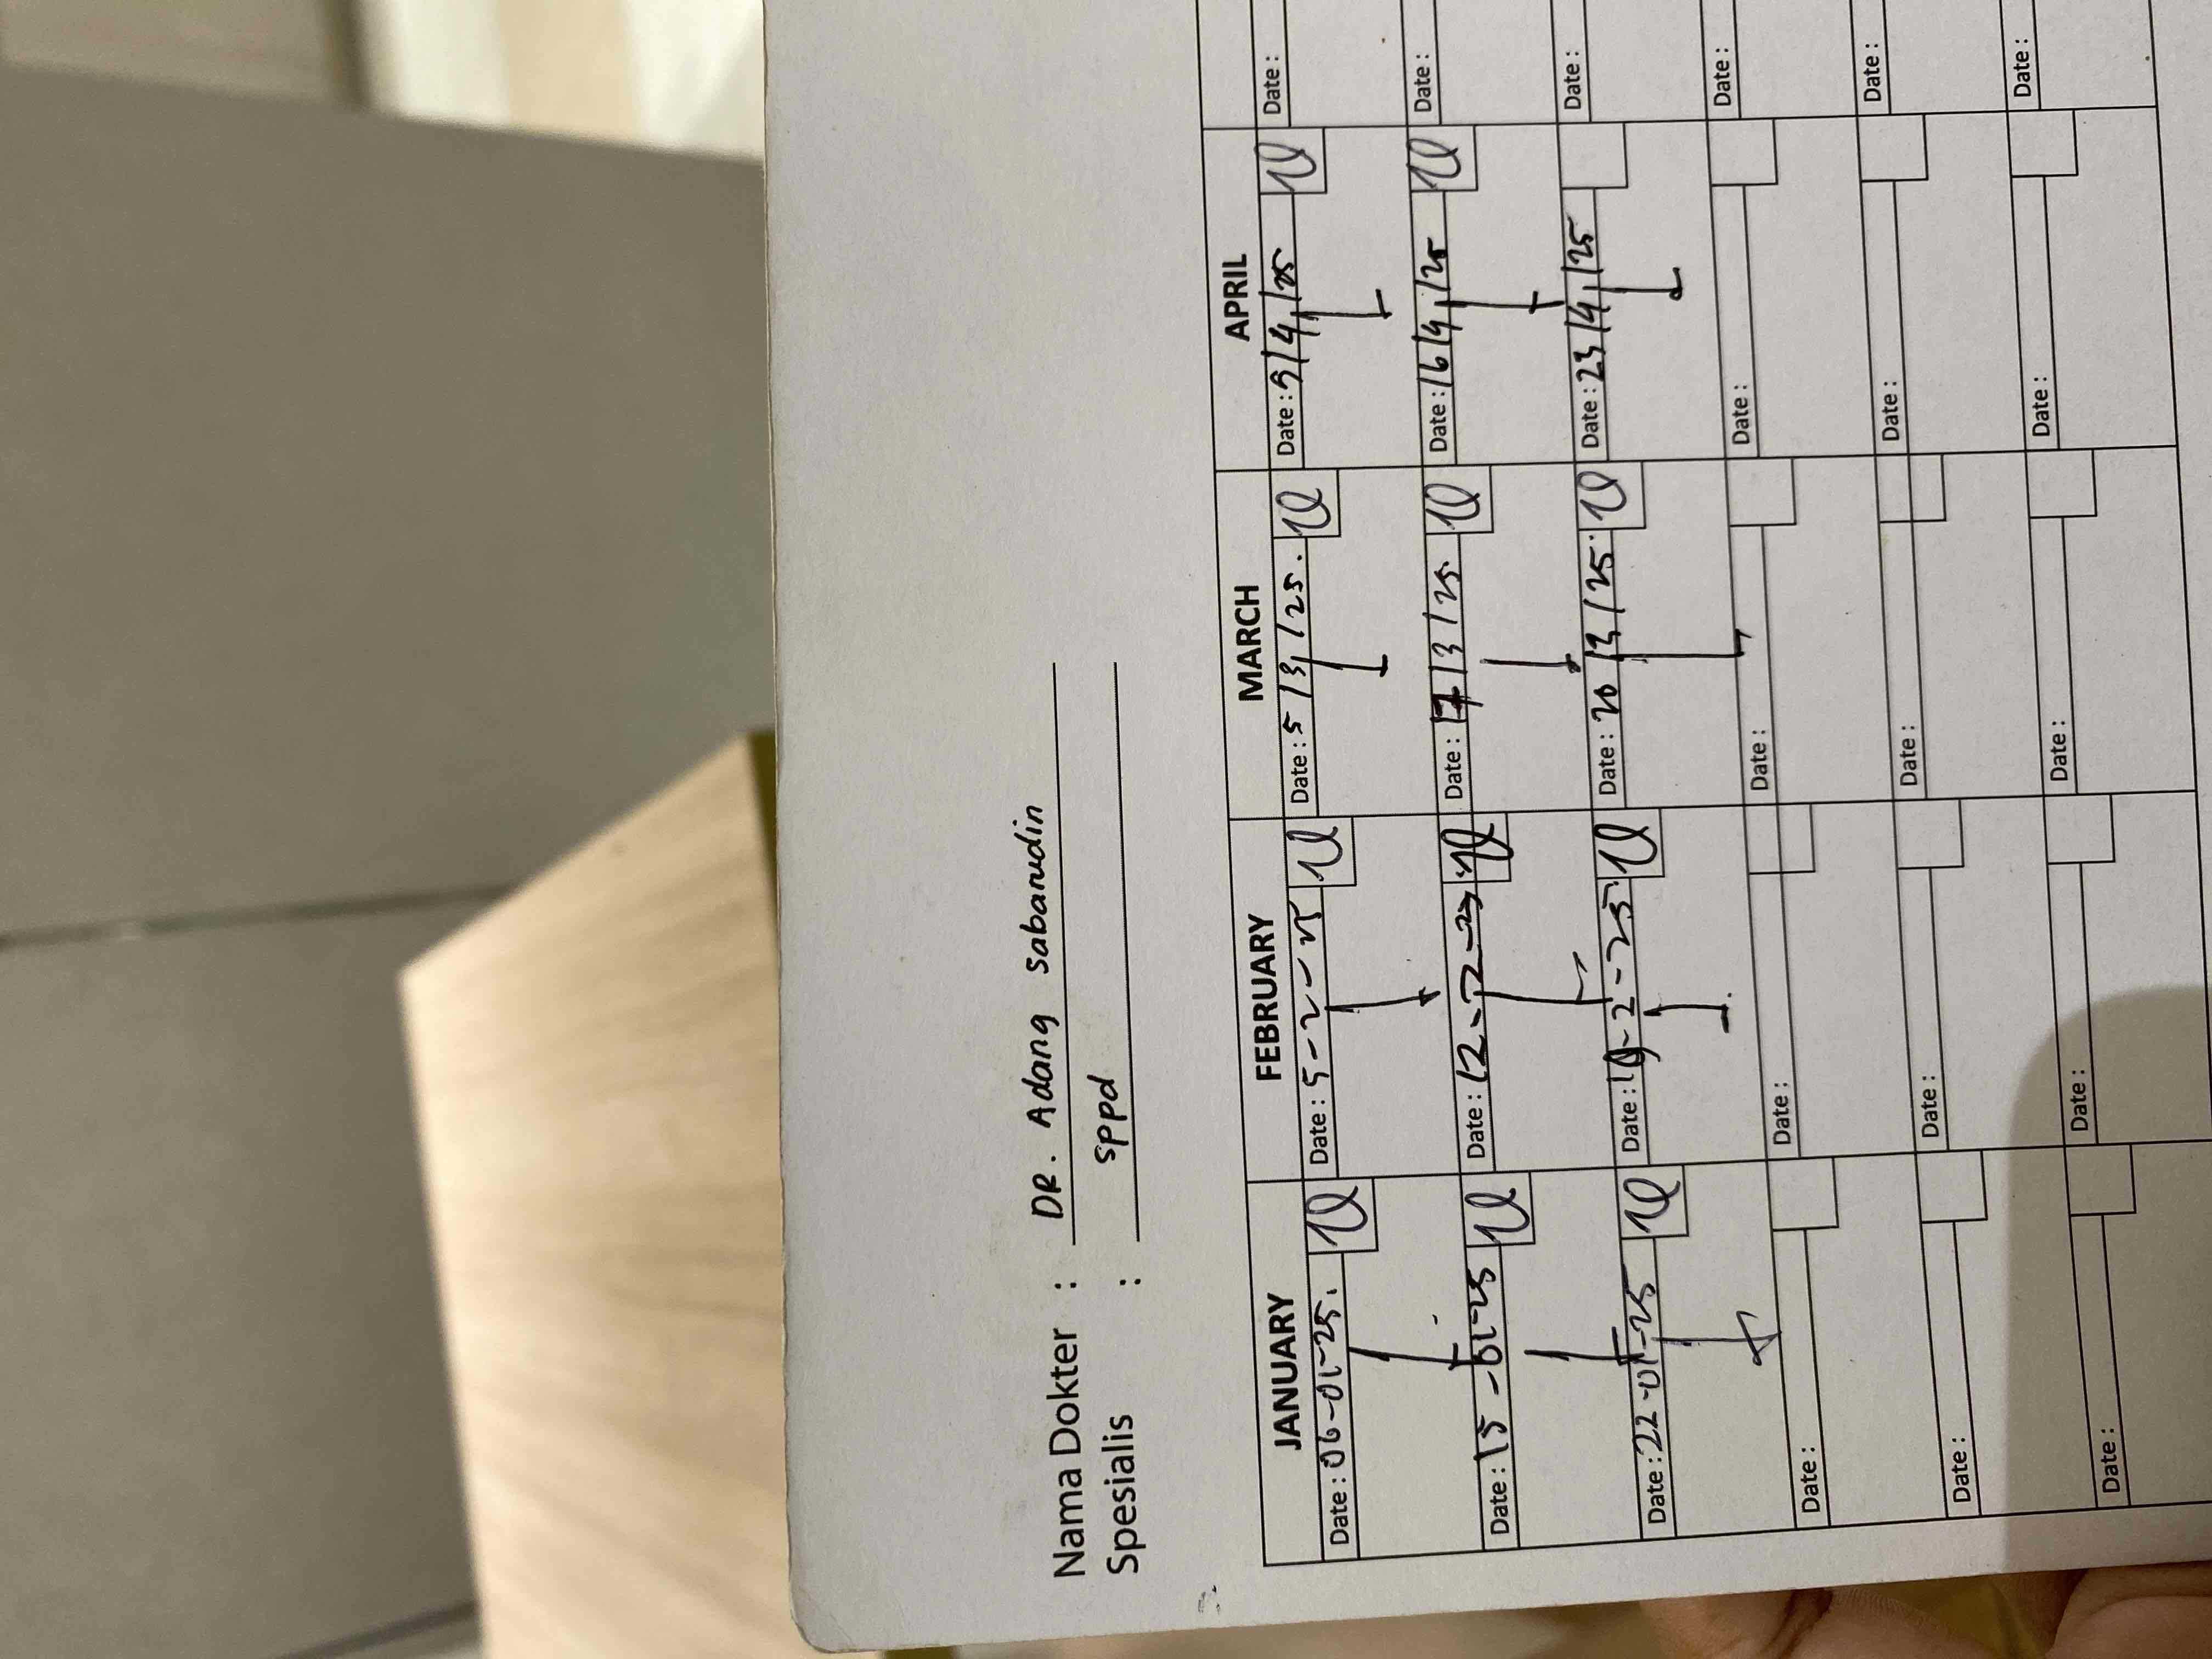 Nama Dokter : DR. Adang sabarudin
Spesialis : sppd
JANUARY FEBRUARY MARCH APRIL
Date : 06-01-25. Date : 5-2-25 Date : 5/3/25. Date : 9/4/25 Date :
Date : 15-01-25 Date : 12-2-25 Date : 17/3/25 Date : 16/4/25 Date :
Date : 22-01-25 Date : 19-2-25 Date : 20/3/25. Date : 23/4/25 Date :
Date : Date : Date : Date : Date :
Date : Date : Date : Date : Date :
Date : Date : Date : Date : Date :